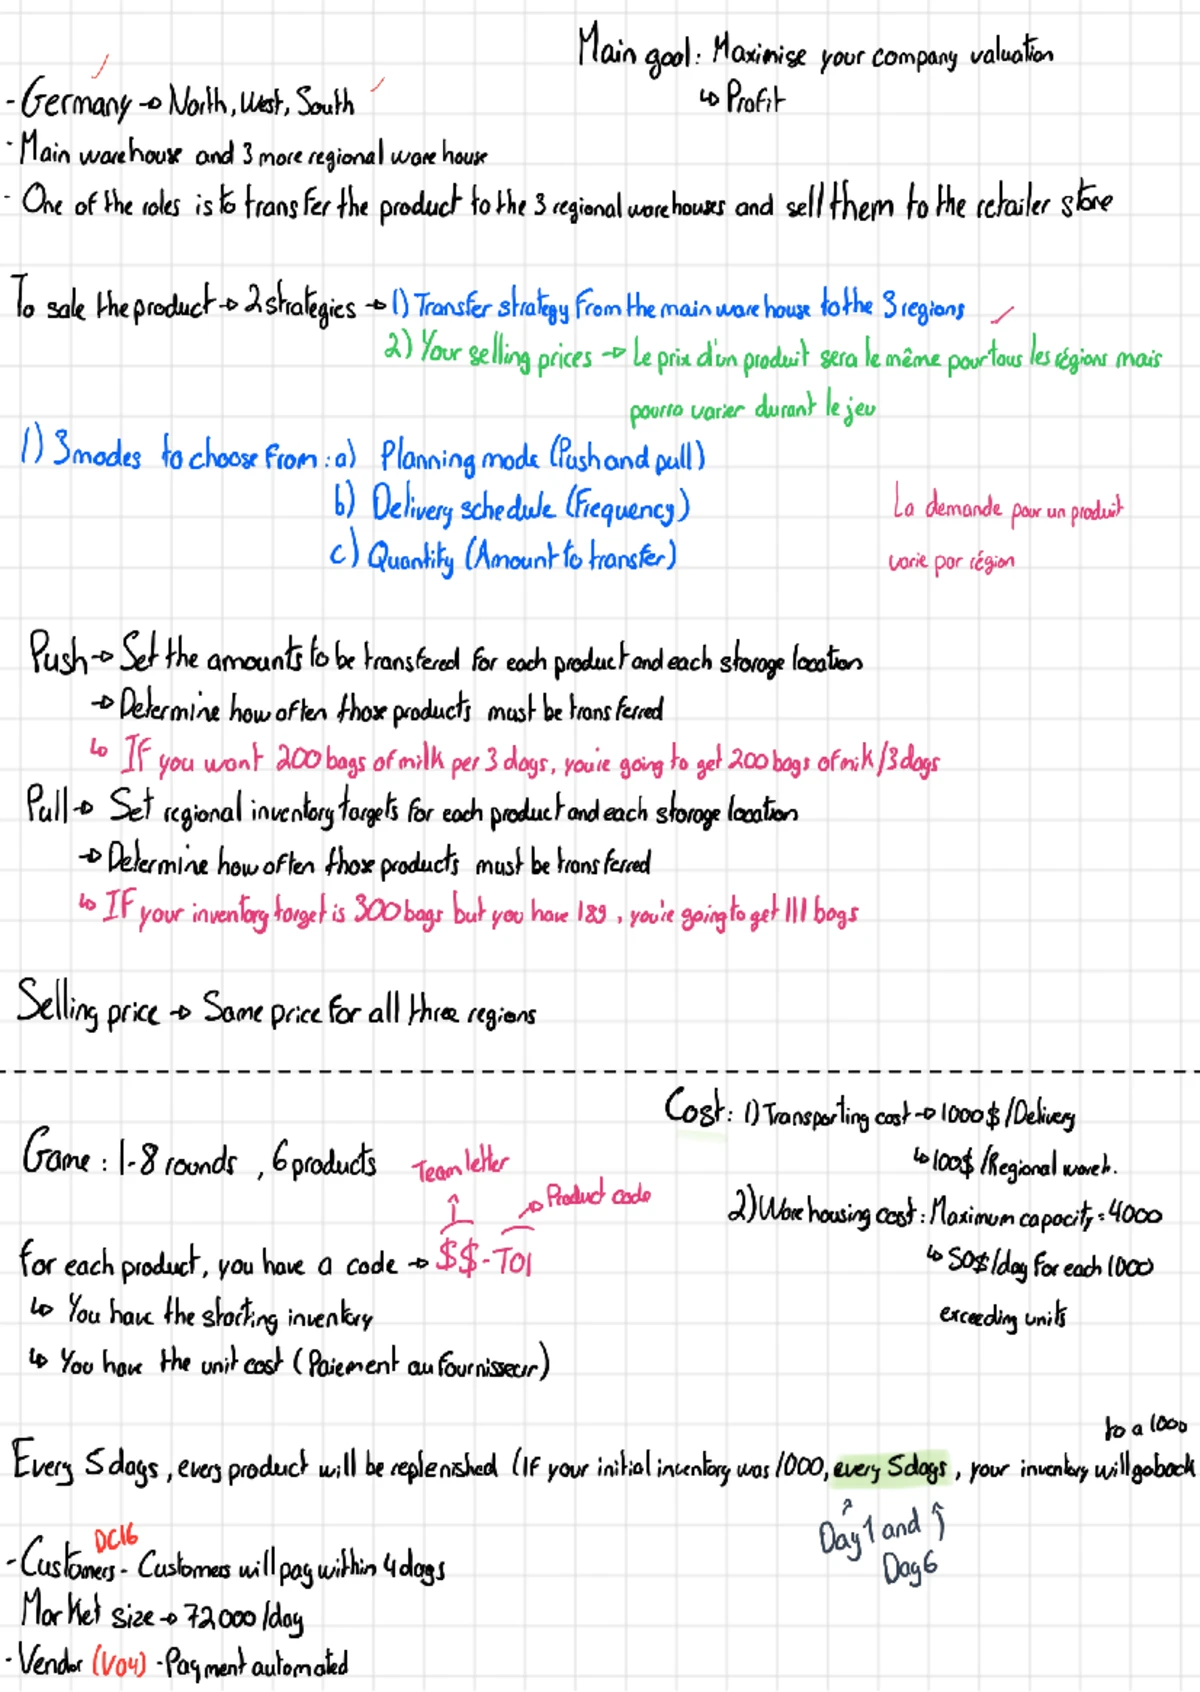 Main goal: Maximise your company valuation
↳ Profit
- Germany → North, West, South
- Main warehouse and 3 more regional warehouse
- One of the roles is to transfer the product to the 3 regional warehouses and sell them to the retailer store
To sale the product → 2 strategies → 1) Transfer strategy from the main warehouse to the 3 regions
2) Your selling prices → Le prix d'un produit sera le même pour tous les régions mais
pourra varier durant le jeu
1) 3 modes to choose from: a) Planning mode (Push and pull)
b) Delivery schedule (Frequency)
c) Quantity (Amount to transfer)
La demande pour un produit
varie par région
Push → Set the amounts to be transfered for each product and each storage location
→ Determine how often those products must be transferred
↳ If you want 200 bags of milk per 3 days, you're going to get 200 bags of milk/3 days
Pull → Set regional inventory targets for each product and each storage location
→ Determine how often those products must be transferred
↳ If your inventory target is 300 bags but you have 189, you're going to get 111 bags
Selling price → Same price for all three regions
Cost: 1) Transporting cost → 1000$/Delivery
↳ 100$/Regional wareh.
2) Warehousing cost: Maximum capacity = 4000
↳ 50$/day for each 1000
exceeding units
Game: 1-8 rounds, 6 products
Team letter
Product code
for each product, you have a code → $$-T01
↳ You have the starting inventory
↳ You have the unit cost (Paiement au fournisseur)
Every 5 days, every product will be replenished (If your initial inventory was 1000, every 5 days, your inventory will go back
to a 1000
Day 1 and
Day 6
DC16
- Customers - Customers will pay within 4 days
Market size → 72000/day
- Vendor (V04) - Payment automated